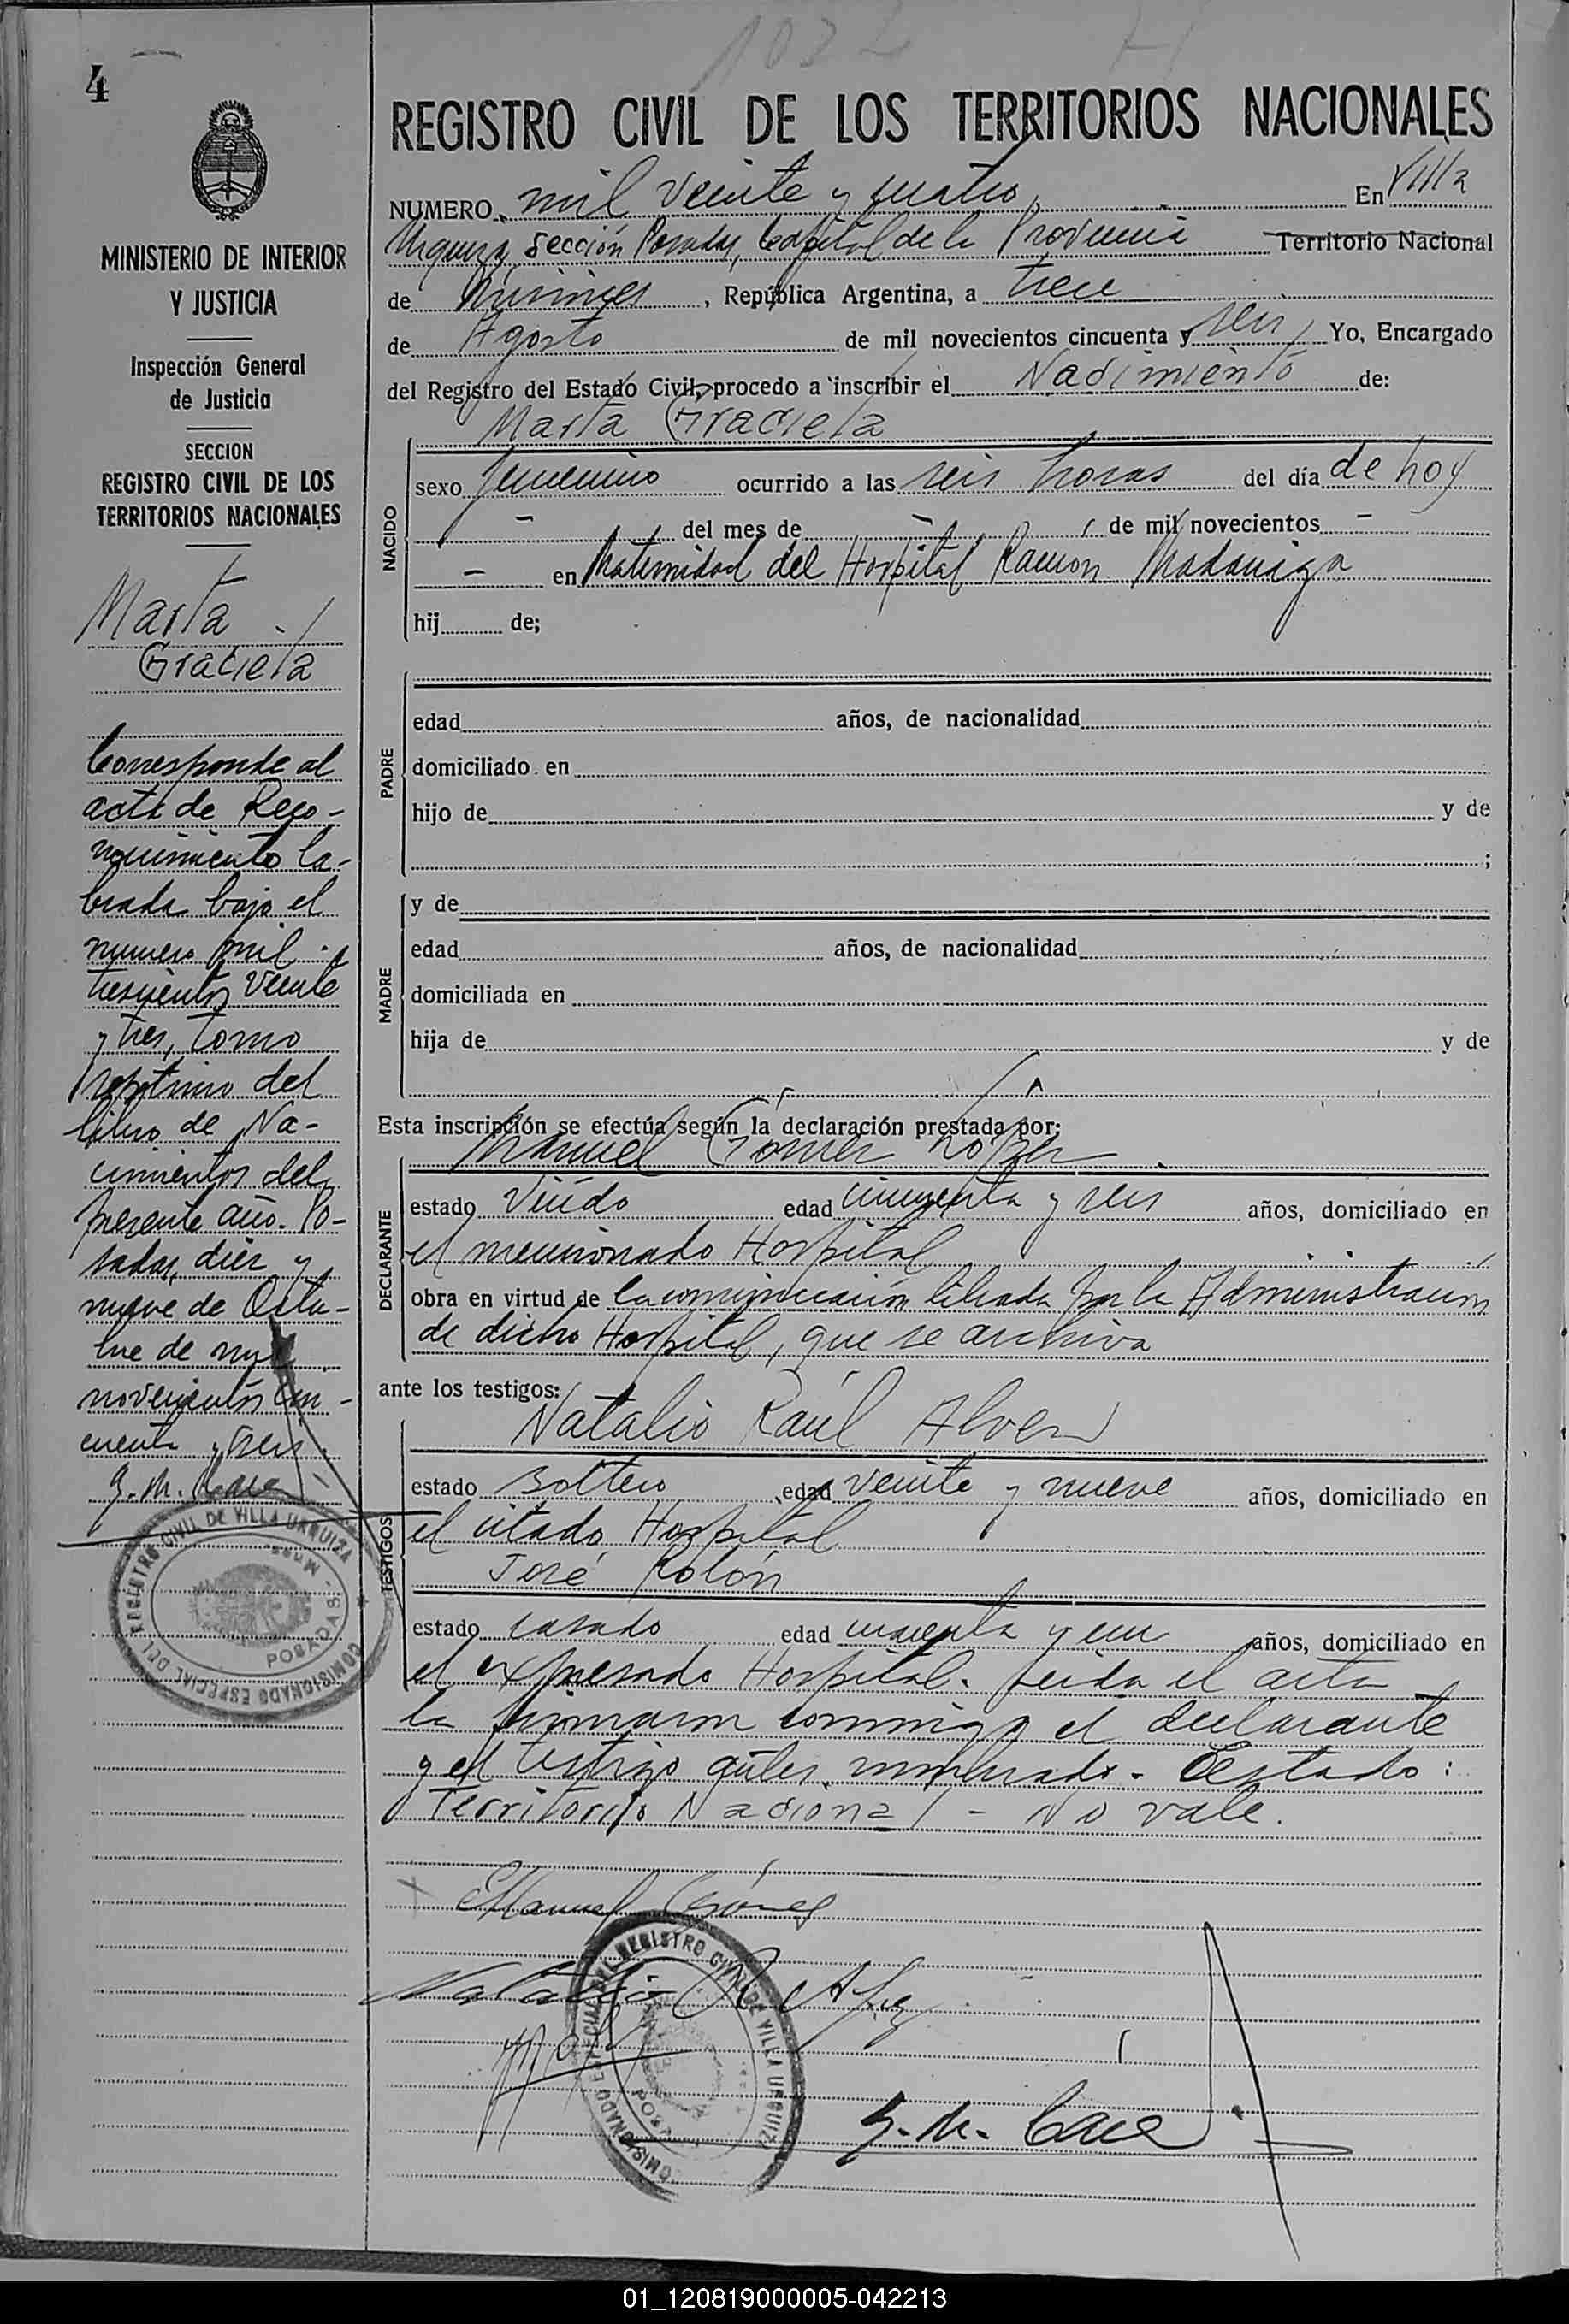 4
MINISTERIO DE INTERIOR
Y JUSTICIA
Inspección General
de Justicia
SECCION
REGISTRO CIVIL DE LOS
TERRITORIOS NACIONALES
Marta
Graciela
Corresponde al
acta de Reco-
nocimiento la-
brada bajo el
numero mil
trescientos veinte
y tres, tomo
septimo del
libro de Na-
cimientos del
presente año. Po-
sadas, diez y
nueve de Octu-
bre de mil
novecientos cin-
cuenta y seis.
DEL REGISTRO CIVIL DE VILLA URQUIZA
COMISIONADO ESPECIAL
POSADAS - Mnes.
1032
REGISTRO CIVIL DE LOS TERRITORIOS NACIONALES
NUMERO mil veinte y cuatro En Villa
Urquiza, sección Posadas, Capital de la Provincia Territorio Nacional
de Misiones, República Argentina, a trece
de Agosto de mil novecientos cincuenta y seis, Yo, Encargado
del Registro del Estado Civil, procedo a inscribir el Nacimiento de:
Marta Graciela
NACIDO
sexo femenino ocurrido a las seis horas del día de hoy
- del mes de - de mil novecientos -
- en Maternidad del Hospital Ramón Madariaga
hij de;
PADRE
edad años, de nacionalidad
domiciliado en
hijo de y de
;
MADRE
y de
edad años, de nacionalidad
domiciliada en
hija de y de
Esta inscripción se efectúa según la declaración prestada por:
DECLARANTE
Manuel Gómez López
estado viudo edad cincuenta y seis años, domiciliado en
el mencionado Hospital
obra en virtud de la comunicación librada por la Administración
de dicho Hospital, que se archiva
ante los testigos:
TESTIGOS
Natalio Raúl Alvez
estado soltero edad veinte y nueve años, domiciliado en
el citado Hospital
José Rolón
estado casado edad y un años, domiciliado en
el expresado Hospital. Leida el acta
la firmaron conmigo el declarante
y el testigo nombrado. Testado:
Territorio Nacional - No vale.
Manuel Gómez
Natalio R. Alvez
DEL REGISTRO CIVIL DE VILLA URQUIZA
COMISIONADO ESPECIAL
01_120819000005-042213